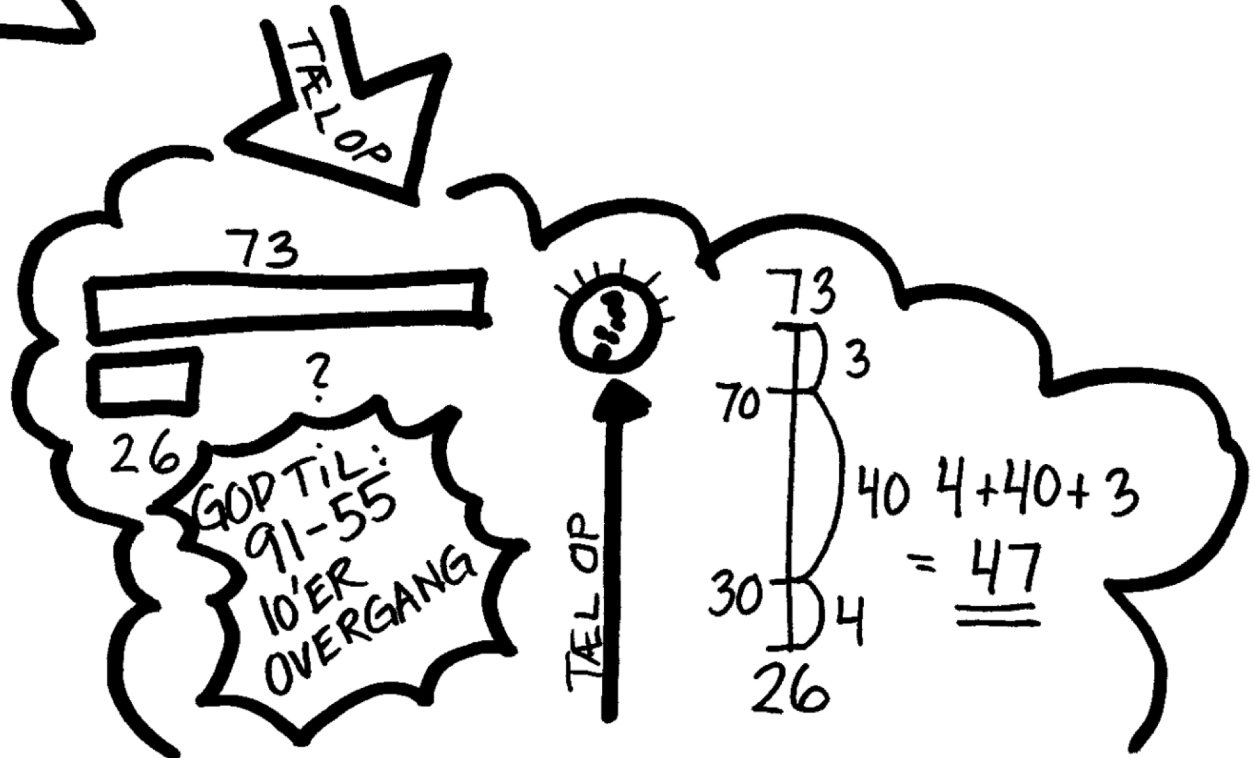 TÆL OP
73
?
26
GOD TiL:
91-55
10'ER
OVERGANG
TÆL OP
73
3
70
40
30
4
26
4+40+3
= 47